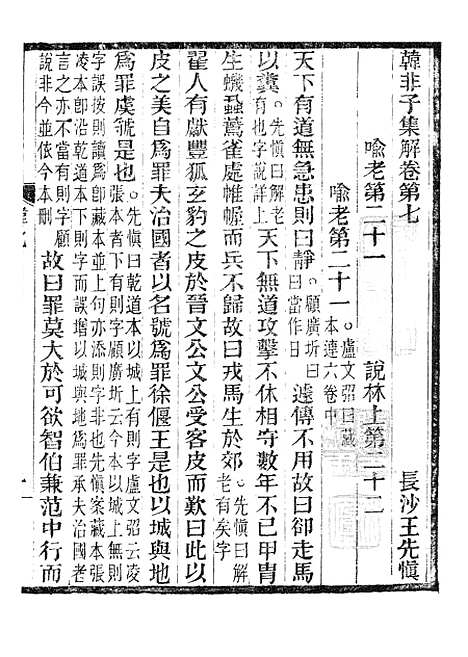 韓非子集解卷第七
長沙王先愼
喻老第二十一　說林上第二十二
喻老第二十一。盧文弨曰藏
本連六卷中
天下有道無急患則曰靜。顧廣圻曰
曰當作日遽傳不用故曰卻走馬
以糞。先愼曰解老
有也字說詳上天下無道攻擊不休相守數年不已甲冑
生蟣蝨鷰雀處帷幄而兵不歸故曰戎馬生於郊。先愼曰解
老有矣字
翟人有獻豐狐玄豹之皮於晉文公文公受客皮而歎曰此以
皮之美自爲罪夫治國者以名號爲罪徐偃王是也以城與地
爲罪虞虢是也。先愼曰乾道本以城上有則字盧文弨云凌
張本者下有則字顧廣圻云今本以城上無則
字誤按則讀爲卽藏本並上句亦添則字非也先愼案藏本張
凌本卽沿乾道本下則字而誤增以城與地爲罪承夫治國者
言之亦不當有則字顧
說非今並依今本刪故曰罪莫大於可欲智伯兼范中行而